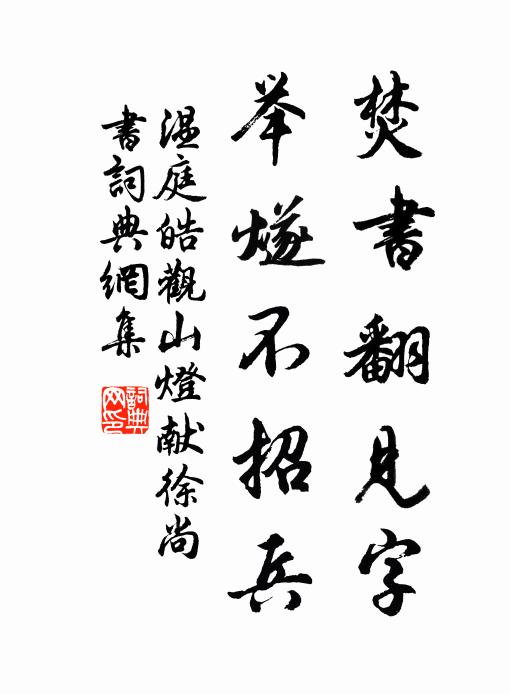 焚書翻見字
举燧不招兵
温庭皓觀山燈献徐尚
書詞典網集
詞典网印